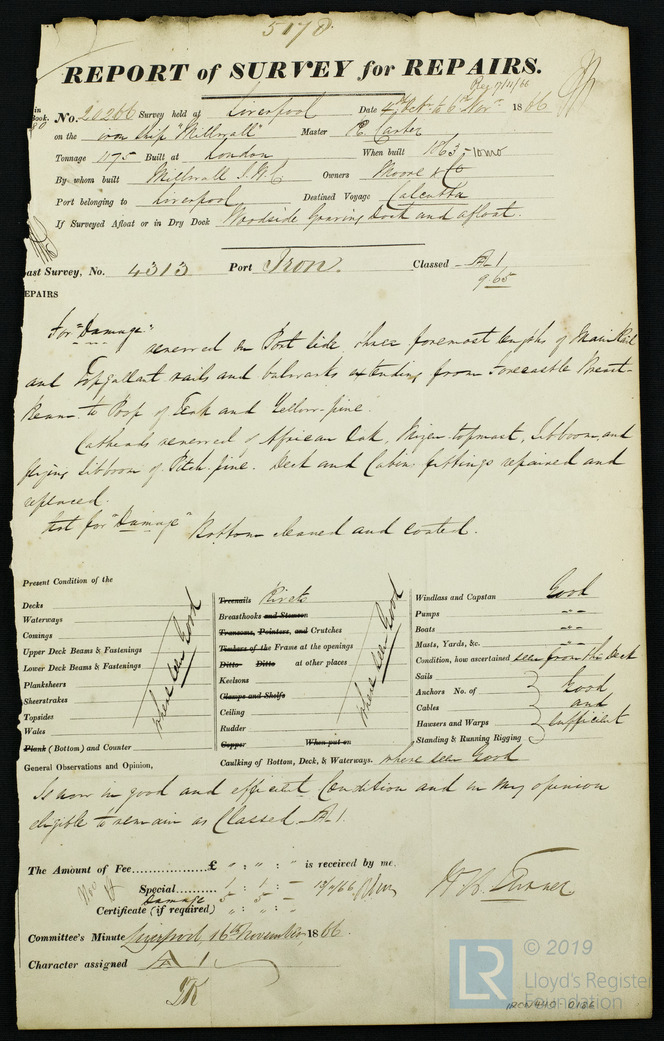 5178.
REPORT of SURVEY for REPAIRS.
Rec 17/11/66
No. 20266 Survey held at Liverpool Date 4th Octr. to 6th Novr. 1866
on the iron ship "Millwall" Master R. Carter
Tonnage 1175 Built at London When built 1863-10mo
By whom built Millwall I.W.C. Owners Moore & Co
Port belonging to Liverpool Destined Voyage Calcutta
If Surveyed Afloat or in Dry Dock Woodside Graving Dock and afloat.
ast Survey, No. 4313 Port Iron. Classed A1
9.65
EPAIRS
For "Damage"
renewed on Port side three foremost lengths of Main Rail
and Topgallant rails and bulwarks extending from Forecastle Breast-
Beam to Poop of Teak and Yellow-pine.
Catheads renewed of African Oak, Mizen topmast, Jibboom, and
flying Jibboom of Pitch-pine. Deck and Cabin fittings repaired and
replaced.
Not for "Damage" Bottom cleaned and coated.
Present Condition of the
Decks
Waterways
Comings
Upper Deck Beams & Fastenings
Lower Deck Beams & Fastenings
Planksheers
Sheerstrakes
Topsides
Wales
Plank (Bottom) and Counter
where seen Good
General Observations and Opinion,
Treenails Rivets
Breasthooks and Stemson
Transoms, Pointers, and Crutches
Timbers of the Frame at the openings
Ditto Ditto at other places
Keelsons
Clamps and Shelfs
Ceiling
Rudder
Copper When put on
where seen Good
Caulking of Bottom, Deck, & Waterways. where seen Good
Windlass and Capstan Good
Pumps "
Boats "
Masts, Yards, &c. "
Condition, how ascertained seen from the deck
Sails
Anchors No. of Good
Cables and
Hawsers and Warps sufficient
Standing & Running Rigging
Is now in good and efficient Condition and in my opinion
eligible to remain as Classed A1.
The Amount of Fee £ " : " : " is received by me.
Special 1 : 1 : -
Damage 5 5 -
Certificate (if required) " : " : -
Committee's Minute Liverpool, 16th November, 1866.
Character assigned A1
© 2019
LR
Lloyd's Register
Foundation
IRON410-0186